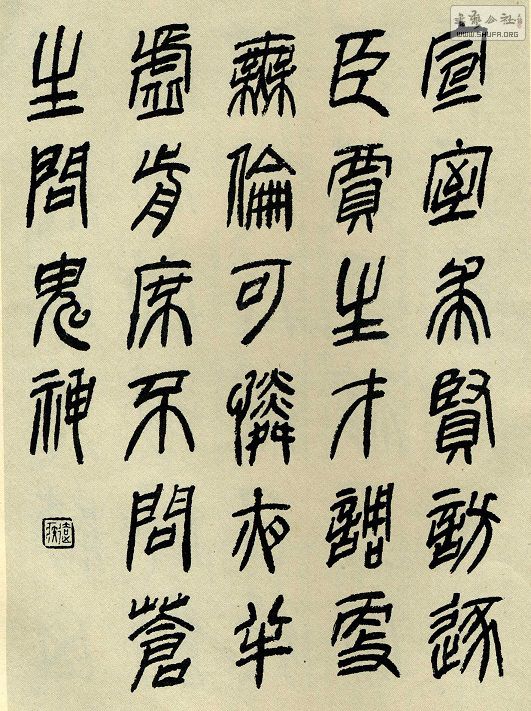 宣室求賢訪逐
臣賈生才調更
無倫可憐夜半
虛前席不問蒼
生問鬼神
書藝公社
WWW.SHUFA.ORG